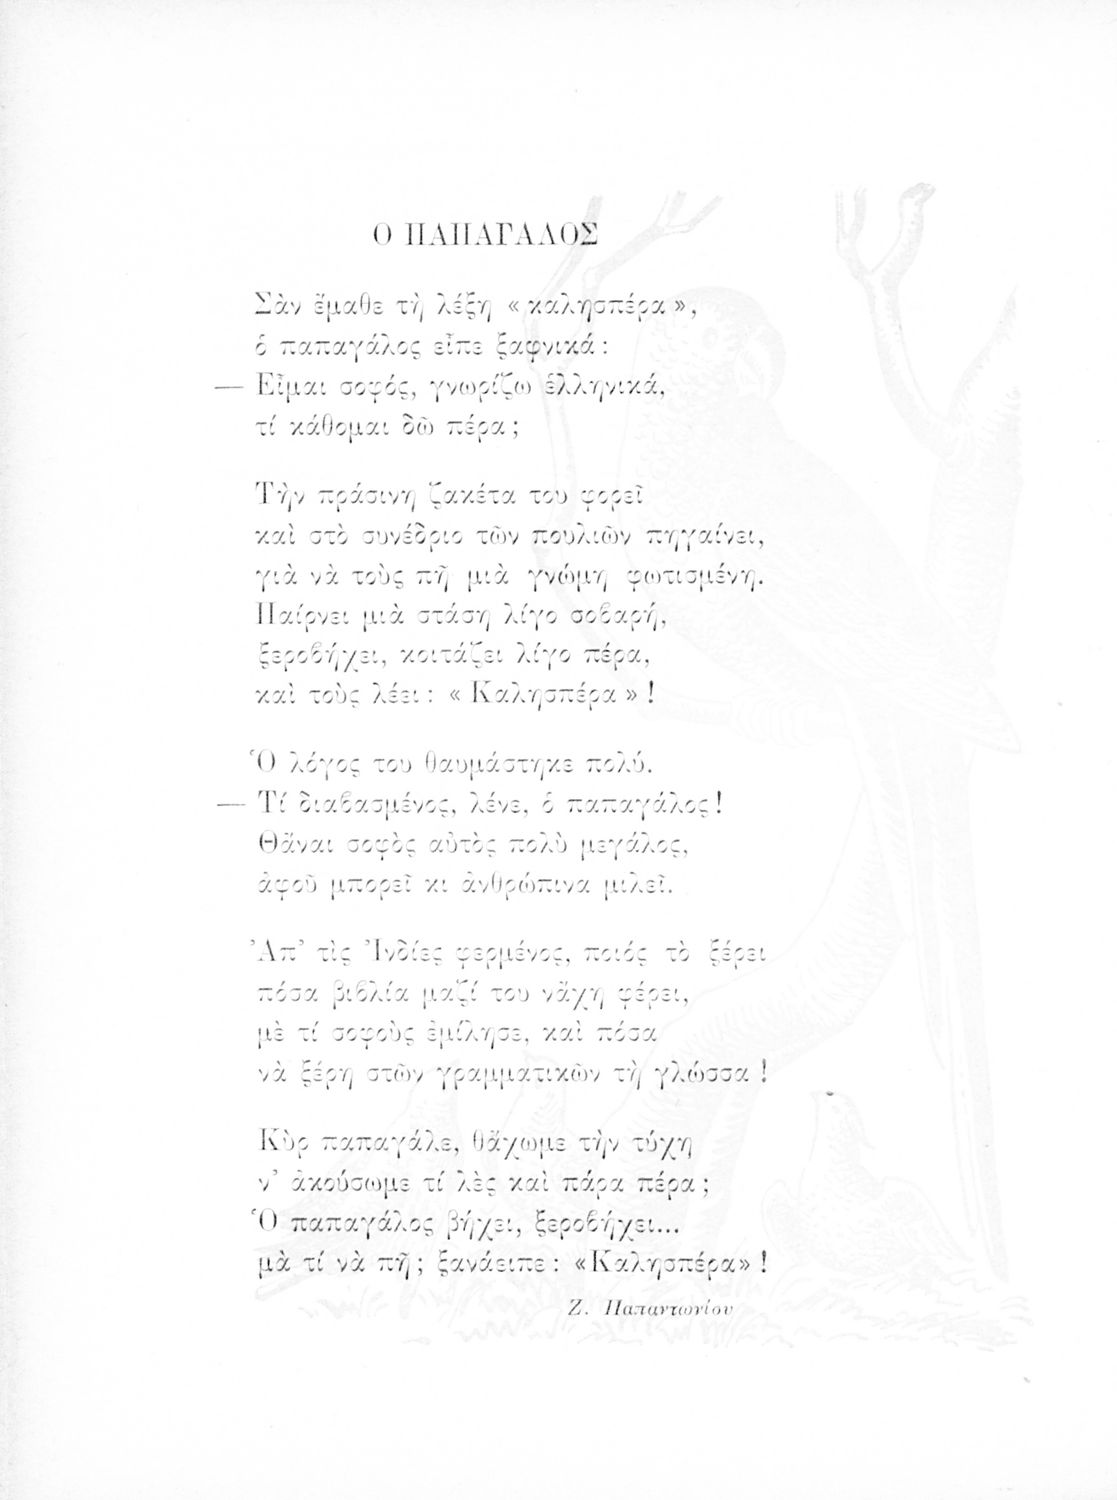 Ο ΠΑΠΑΓΑΛΟΣ
Σὰν ἔμαθε τὴ λέξη « καλησπέρα »,
ὁ παπαγάλος εἶπε ξαφνικά :
— Εἶμαι σοφός, γνωρίζω ἑλληνικά,
τί κάθομαι δῶ πέρα ;
Τὴν πράσινη ζακέτα του φορεῖ
καὶ στὸ συνέδριο τῶν πουλιῶν πηγαίνει,
γιὰ νὰ τοὺς πῆ μιὰ γνώμη φωτισμένη.
Παίρνει μιὰ στάση λίγο σοβαρή,
ξεροβήχει, κοιτάζει λίγο πέρα,
καὶ τοὺς λέει : « Καλησπέρα » !
Ὁ λόγος του θαυμάστηκε πολύ.
— Τί διαβασμένος, λένε, ὁ παπαγάλος !
Θἄναι σοφὸς αὐτὸς πολὺ μεγάλος,
ἀφοῦ μπορεῖ κι ἀνθρώπινα μιλεῖ.
Ἀπ’ τὶς Ἰνδίες φερμένος, ποιός τὸ ξέρει
πόσα βιβλία μαζί του νἄχη φέρει,
μὲ τί σοφοὺς ἐμίλησε, καὶ πόσα
νὰ ξέρη στῶν γραμματικῶν τὴ γλώσσα !
Κὺρ παπαγάλε, θἄχωμε τὴν τύχη
ν’ ἀκούσωμε τί λὲς καὶ πάρα πέρα ;
Ὁ παπαγάλος βήχει, ξεροβήχει...
μὰ τί νὰ πῆ ; ξανάειπε : «Καλησπέρα» !
Ζ. Παπαντωνίου